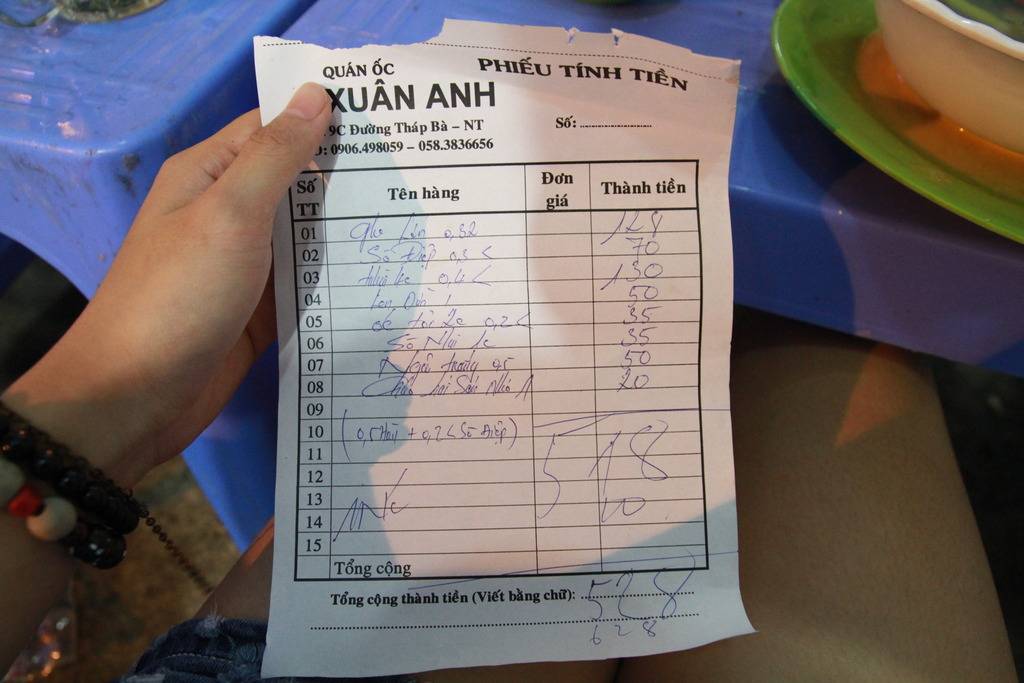 PHIẾU TÍNH TIỀN
QUÁN ỐC
XUÂN ANH
9C Đường Tháp Bà – NT
Số: ....................
: 0906.498059 – 058.3836656
Số TT Tên hàng Đơn giá Thành tiền
01 0,32 128
02 Sò Điệp 0,3 70
03 0,4 130
04 1 50
05 ốc 0,2 35
06 Sò 35
07 0,5 50
08 Cháo hải sản nhỏ 1 20
09
10 (0,5 + 0,2 Sò Điệp) 518
11
12
13 10
14
15
Tổng cộng
Tổng cộng thành tiền (Viết bằng chữ): 528
628